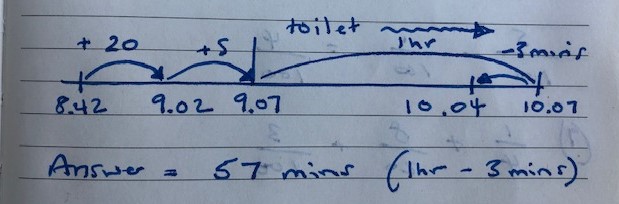 toilet
+ 20 +5 1hr -3mins
8.42 9.02 9.07 10.04 10.07
Answer = 57 mins (1hr - 3 mins)